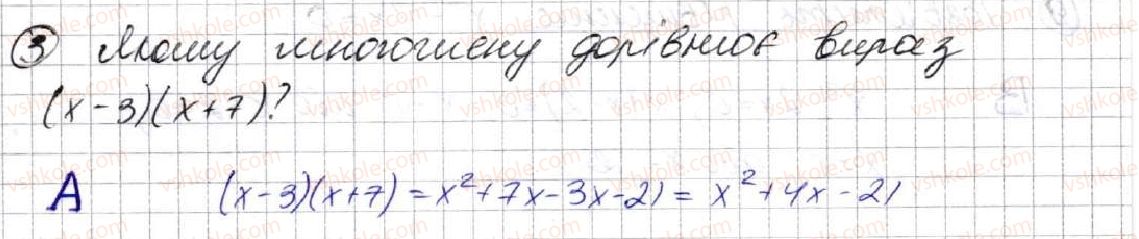 ③ Якому многочлену дорівнює вираз
(x-3)(x+7)?
А (x-3)(x+7) = x²+7x-3x-21 = x²+4x-21